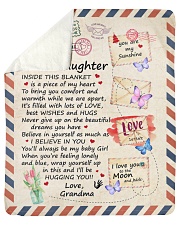 you are my
Sunshine
ughter
INSIDE THIS BLANKET
is a piece of my heart
To bring you comfort and
warmth while we are apart,
it's filled with lots of LOVE,
best WISHES and HUGS
Never give up on the beautiful
dreams you have
Believe in yourself as much as
I BELIEVE IN YOU
You'll always be my baby Girl
When you're feeling lonely
and blue, wrap yourself up
in this and I'll be
HUGGING YOU!!
Love, Grandma
Love
I love you
to the
Moon and back